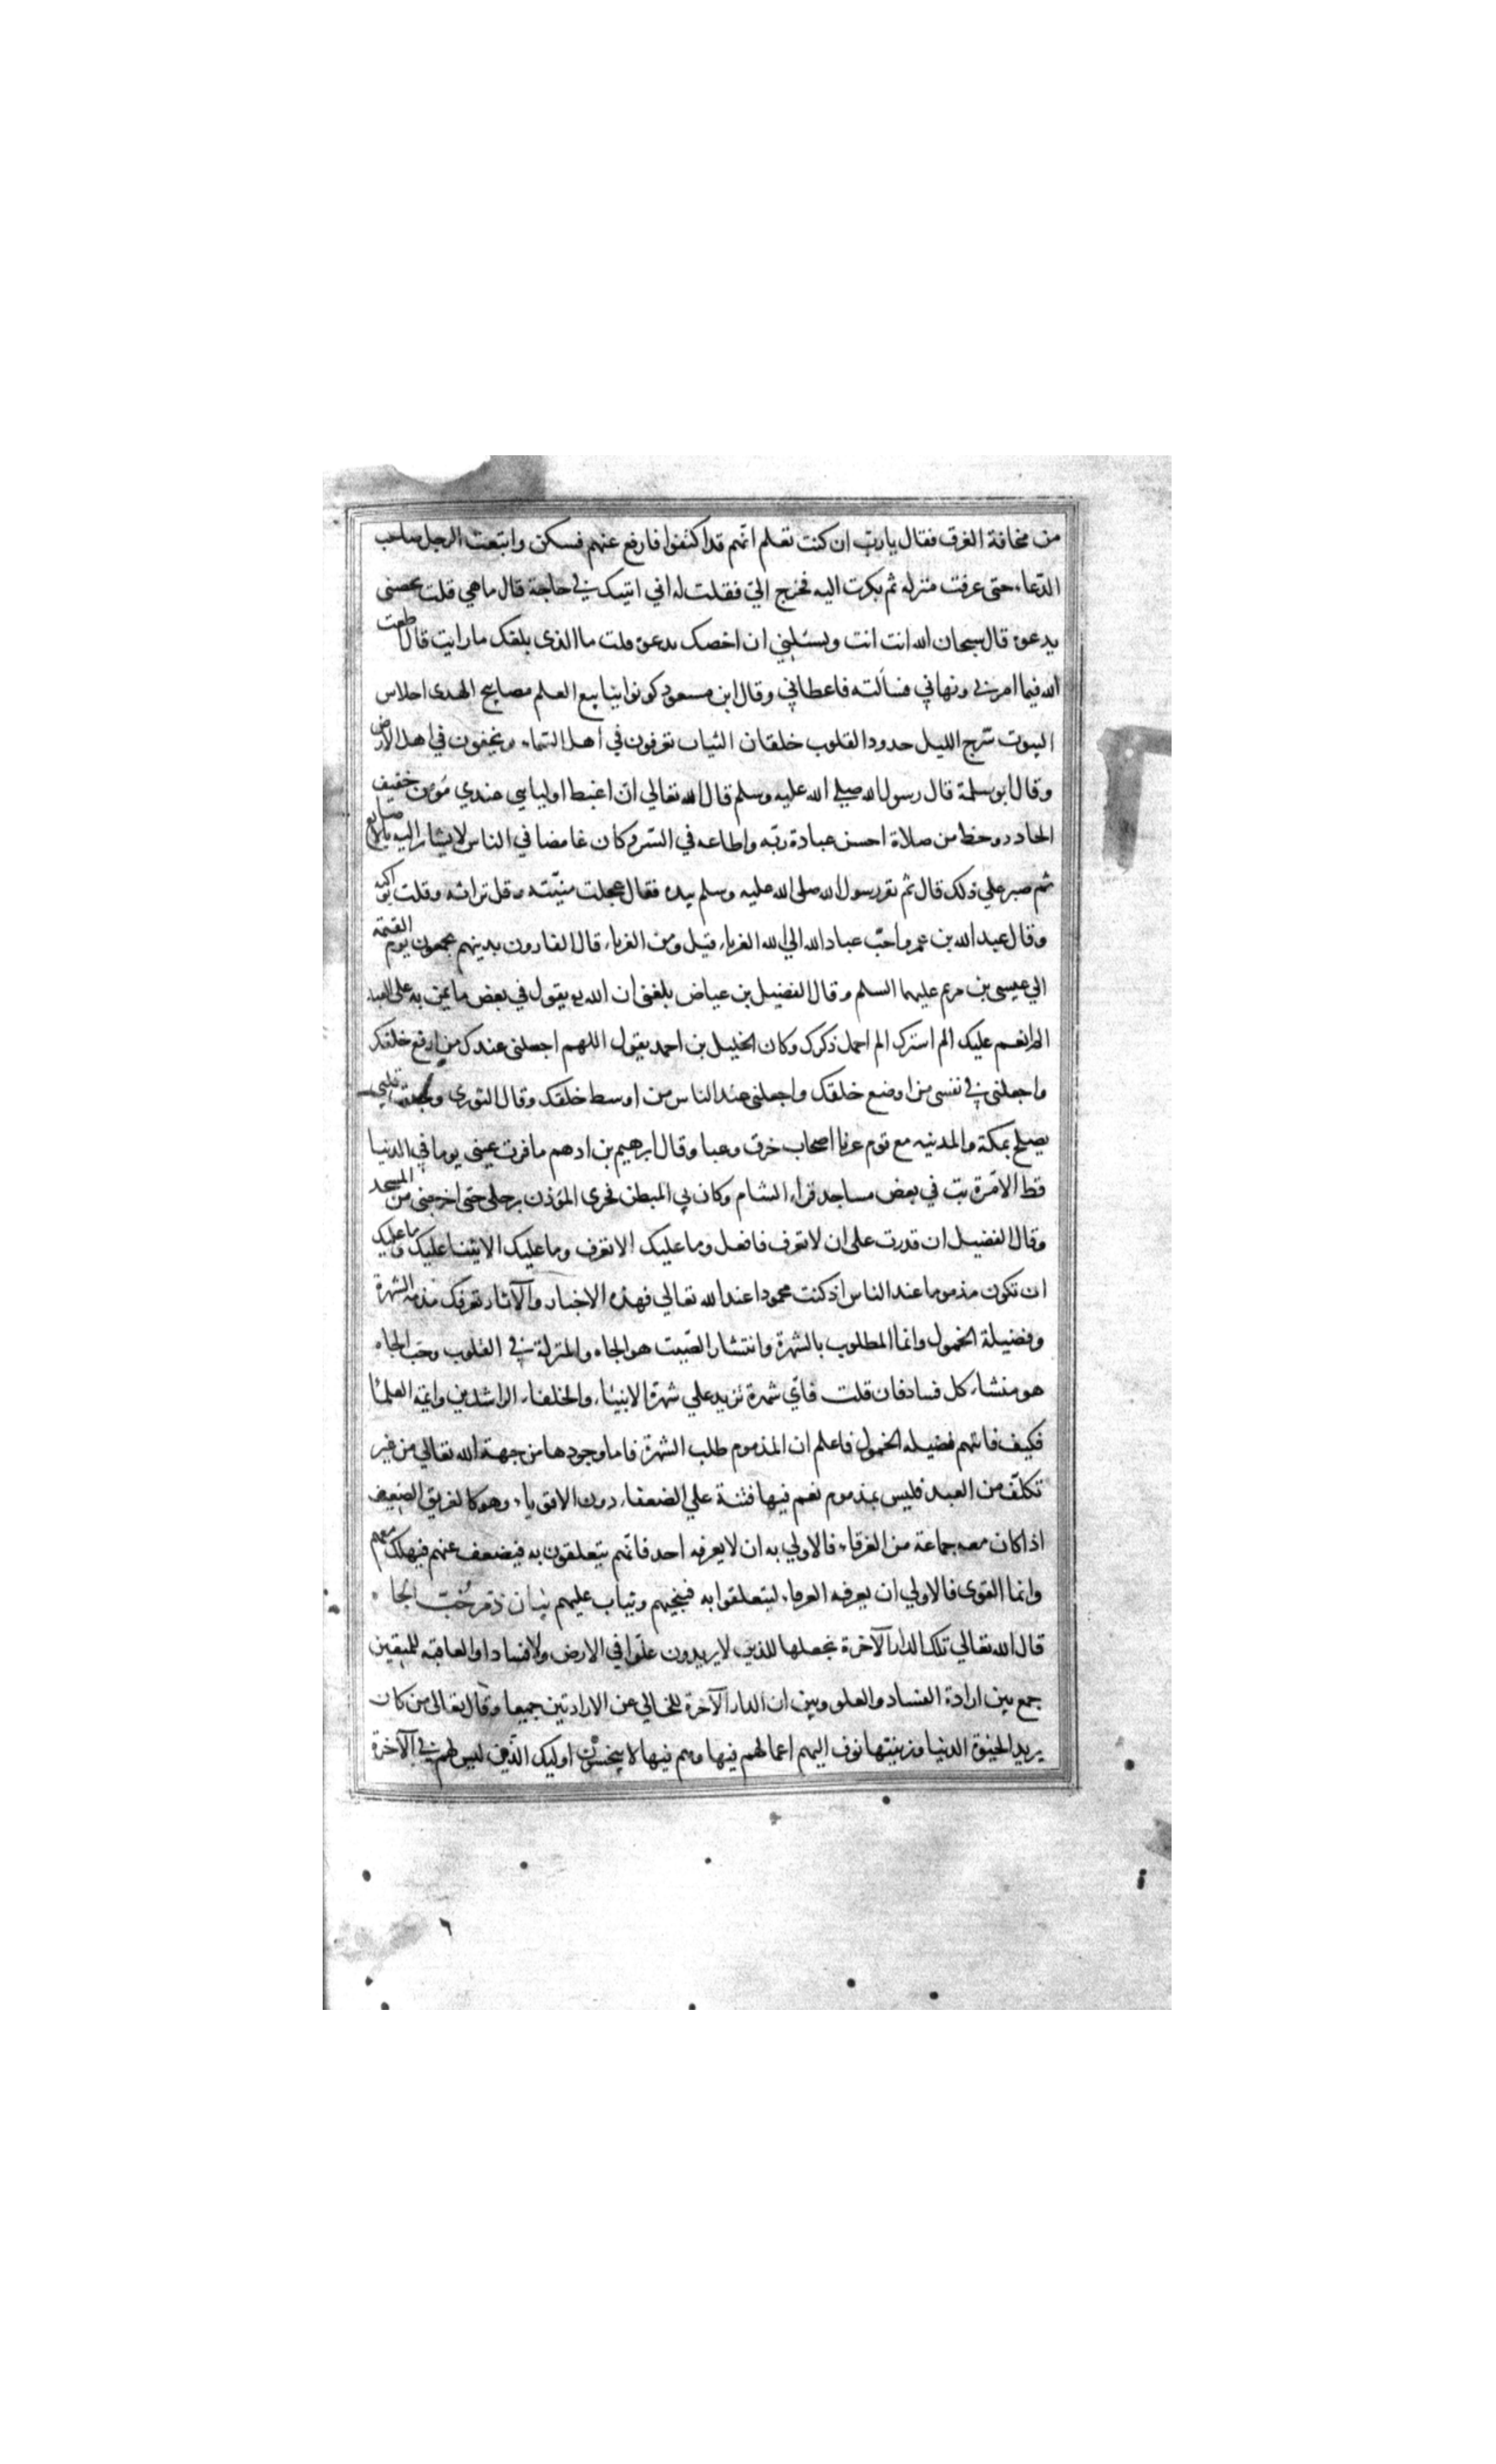 من مخافة الغرق فقال يارب ان كنت تعلم انهم قد اكتفوا فارفع عنهم فسكن واتبعت الرجل صاحب
الدعاء حتى عرفت منزله ثم بكرت اليه فخرج الي فقلت له اني اتيتك في حاجة قال ما هي قلت تخصني
بدعوة قال سبحان الله انت انت وتسئلني ان اخصك بدعوة قلت ما الذى بلغك ما رايت قال اطعت
الله فيما امرني ونهاني فسألته فاعطاني وقال ابن مسعود كونوا ينابيع العلم مصابيح الهدى احلاس
البيوت سرج الليل جدد القلوب خلقان الثياب تعرفون في اهل السماء وتخفون في اهل الارض
وقال ابو سلمة قال رسول الله صلي الله عليه وسلم قال الله تعالي ان اغبط اوليايي عندي مؤمن خفيف
الحاد ذو حظ من صلاة احسن عبادة ربه واطاعه في السر وكان غامضا في الناس لا يشار اليه بالاصابع
ثم صبر علي ذلك قال ثم نقر رسول الله صلى الله عليه وسلم بيده فقال عجلت منيته وقل تراثه وقلت بواكيه
وقال عبد الله بن عمر واحب عباد الله الي الله الغرباء قيل ومن الغرباء قال الفارون بدينهم يجمعون يوم القيمة
الي عيسى بن مريم عليهما السلم وقال الفضيل بن عياض بلغني ان الله يقول في بعض ما يمن به على العبد
الم انعم عليك الم استرك الم اخمل ذكرك وكان الخليل بن احمد يقول اللهم اجعلنى عندك من ارفع خلقك
واجعلنى في نفسى من اوضع خلقك واجعلنى عند الناس من اوسط خلقك وقال الثورى وجدت قلبي
يصلح بمكة والمدينه مع قوم غربا اصحاب خرق وعبا وقال ابرهيم بن ادهم ما قرت عينى يوما في الدنيا
قط الا مرة بت في بعض مساجد قراء الشام وكان بي المبطن فجرى المؤذن برجلى حتى اخرجنى من المسجد
وقال الفضيل ان قدرت على ان لا تعرف فافعل وما عليك الا تعرف وما عليك الا يثنا عليك وما عليك
ان تكون مذموما عند الناس اذ كنت محمودا عند الله تعالي فهذه الاخبار والآثار تعرفك مذمة الشهرة
وفضيلة الخمول وانما المطلوب بالشهرة وانتشار الصيت هو الجاه والمنزلة في القلوب وحب الجاه
هو منشاء كل فساد فان قلت فاي شهرة تزيد علي شهرة الانبياء والخلفاء الراشدين وايمة العلما
فكيف فاتهم فضيلة الخمول فاعلم ان المذموم طلب الشهرة فاما وجودها من جهة الله تعالي من غير
تكلف من العبد فليس بمذموم نعم فيها فتنة علي الضعفاء دون الاقوياء وهو كالغريق الضعيف
اذا كان معه جماعة من الغرقاء فالاولي به ان لا يعرفه احد فانهم يتعلقون به فيضعف عنهم فيهلك معهم
وانما القوى فالاولي ان يعرفه الغرقاء ليتعلقوا به فينجيهم ويثاب عليهم بيان ذم حب الجاه
قال الله تعالي تلك الدار الآخرة نجعلها للذين لا يريدون علوا في الارض ولا فسادا والعاقبه للمتقين
جمع بين ارادة الفساد والعلو وبين ان الدار الآخرة للخالي عن الارادتين جميعا وقال تعالى من كان
يريد الحيوة الدنيا وزينتها نوف اليهم اعمالهم فيها وهم فيها لا يبخسون اوليك الذين ليس لهم في الآخرة
٦